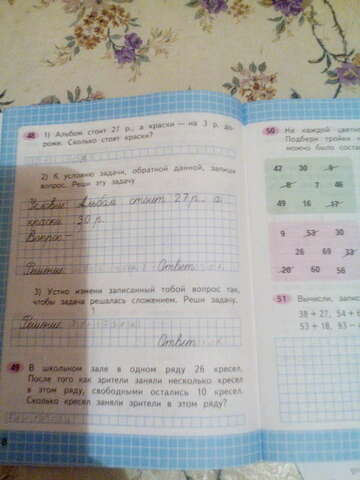 48 1) Альбом стоит 27 р., а краски — на 3 р. до-
роже. Сколько стоят краски?
2) К условию задачи, обратной данной, запиши
вопрос. Реши эту задачу
Условие: Альбом стоит 27 р., а
краски 30 р.
Вопрос
Решение Ответ
3) Устно измени записанный тобой вопрос так,
чтобы задача решалась сложением. Реши задачу.
Решение
Ответ
49 В школьном зале в одном ряду 26 кресел.
После того как зрители заняли несколько кресел
в этом ряду, свободными остались 10 кресел.
Сколько кресел заняли зрители в этом ряду?
8
50 На каждой
Подбери тройки
можно было
42 30 9
8 7 46
49 16 37
9 53 30
26 69 33
20 60 56
51 Вычисли,
38 + 27, 54 +
53 + 18, 93 −